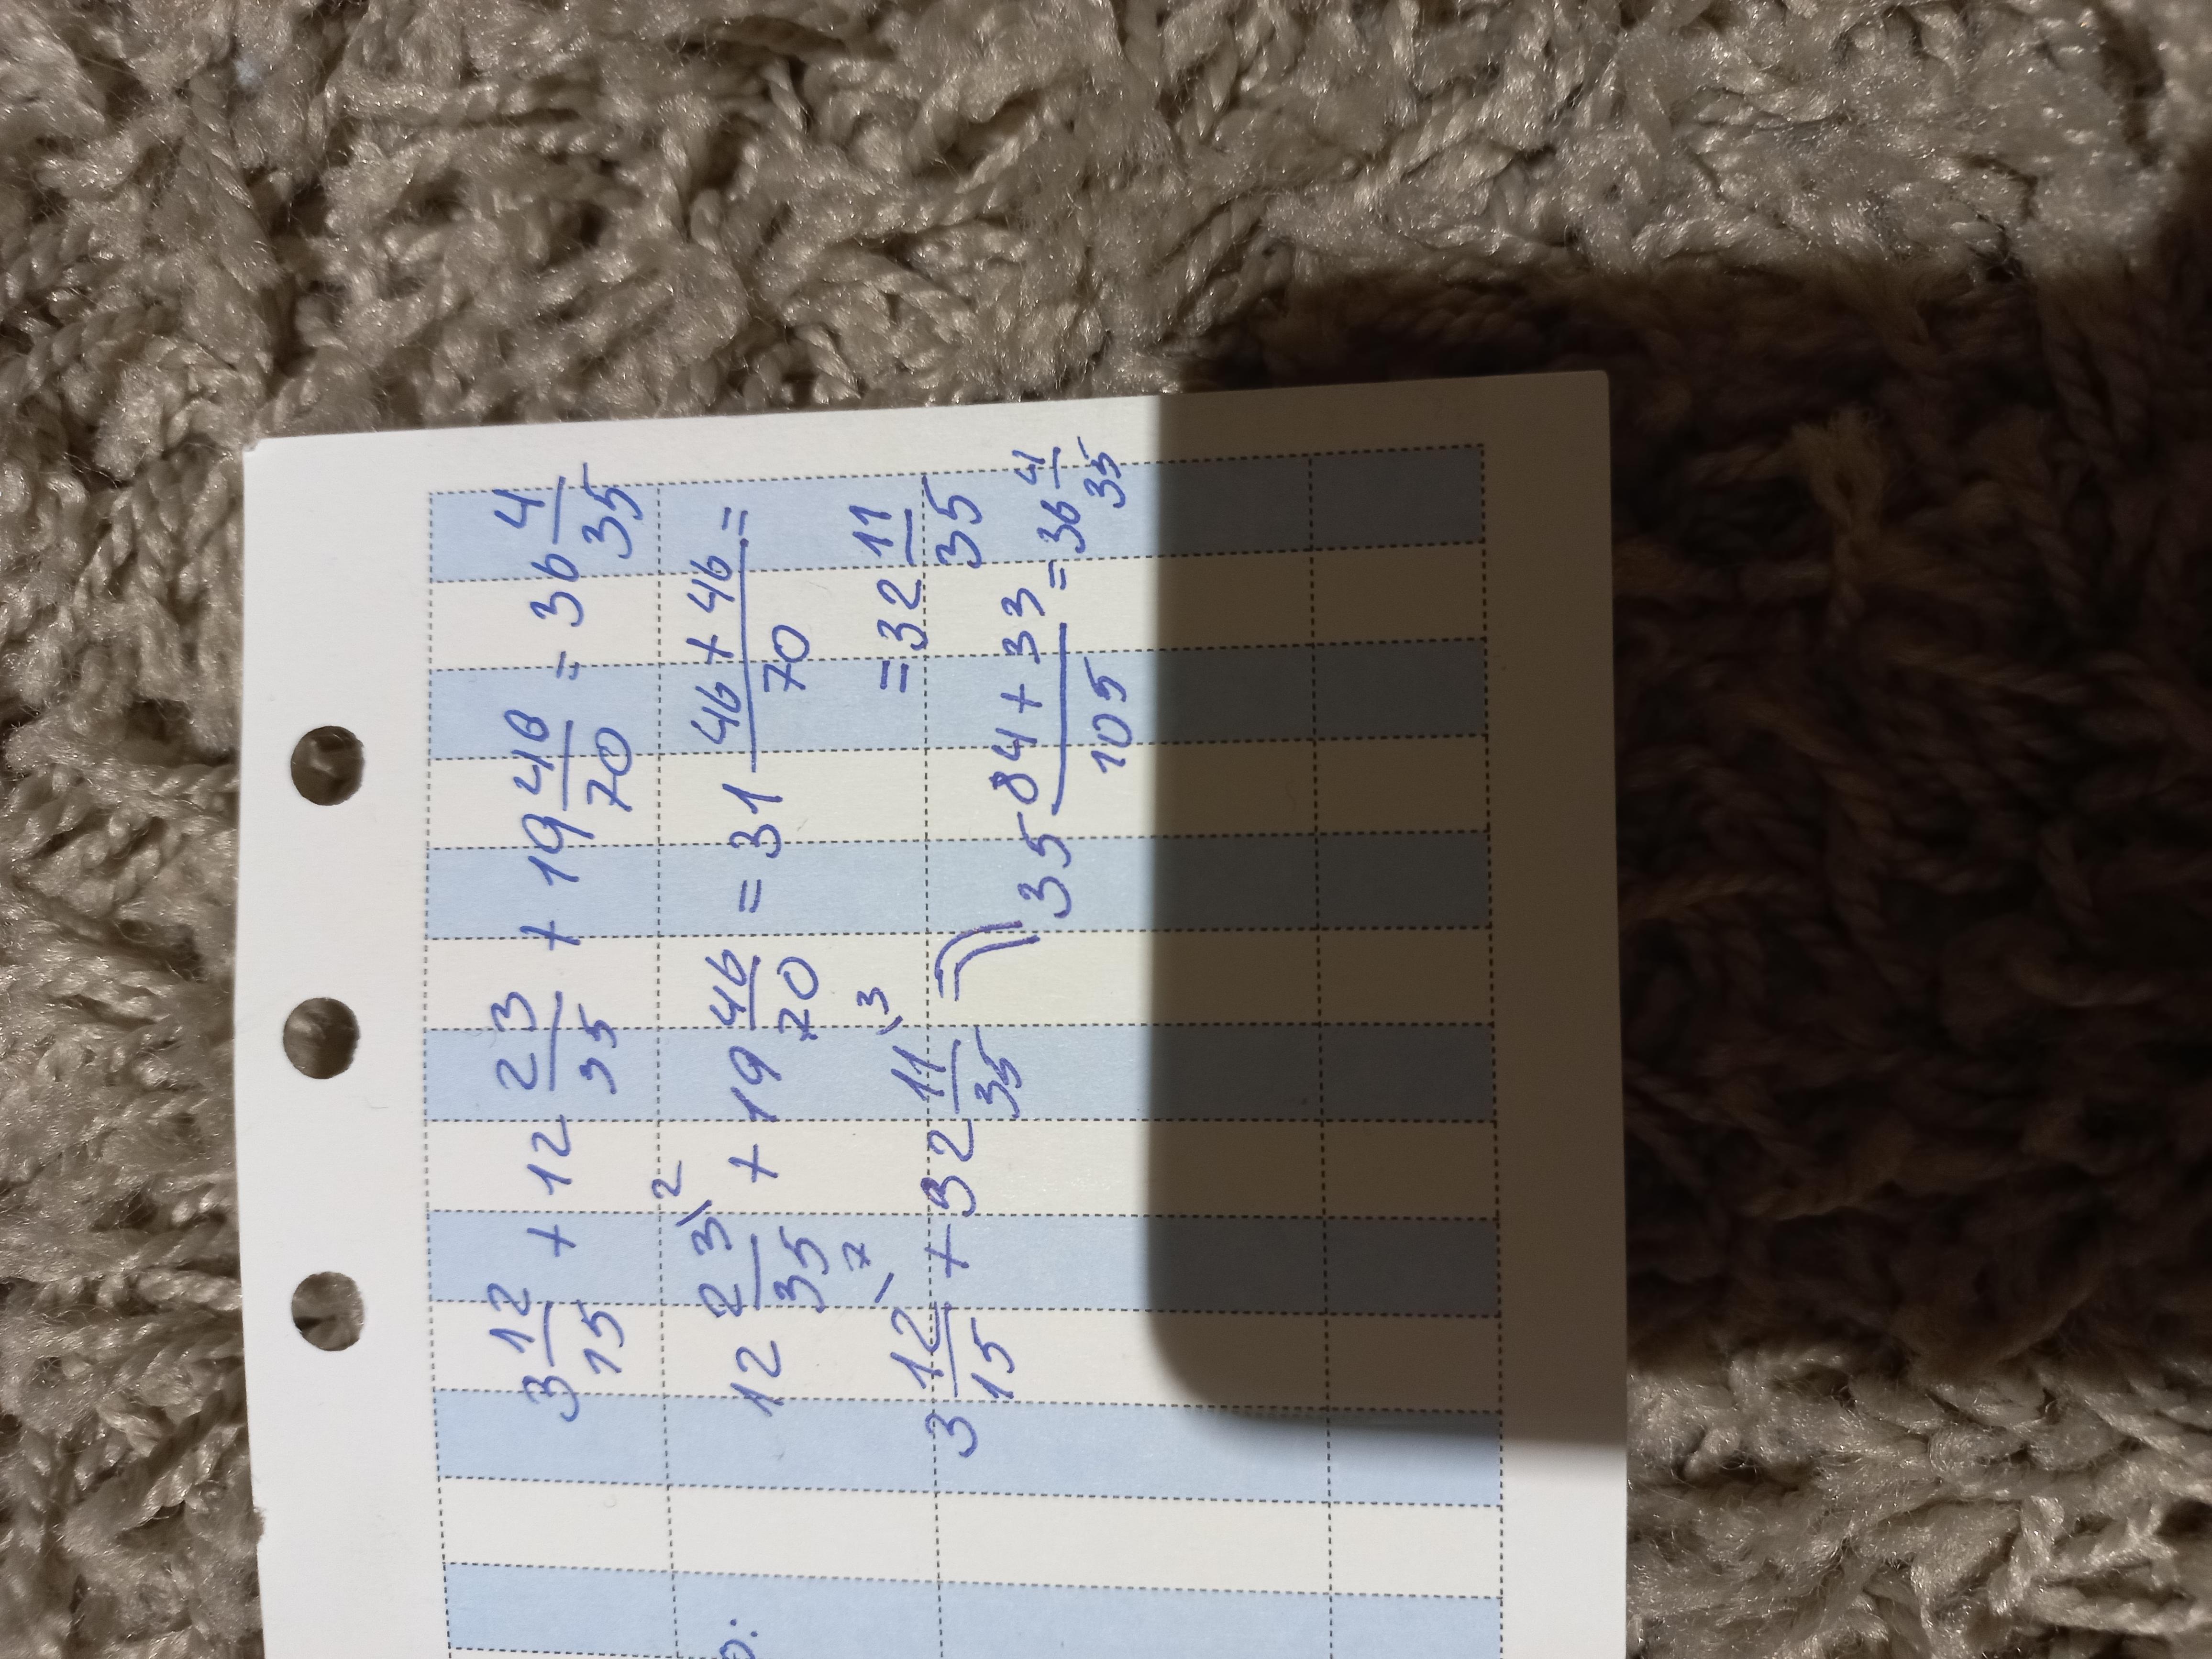 3 12/15 + 12 23/35 + 19 46/70 = 36 4/35
12 23/35 \2 + 19 46/70 = 31 (46+46)/70 =
= 32 11/35
3 12/15 \7 + 32 11/35 \3 = 35 (84+33)/105 = 36 4/35